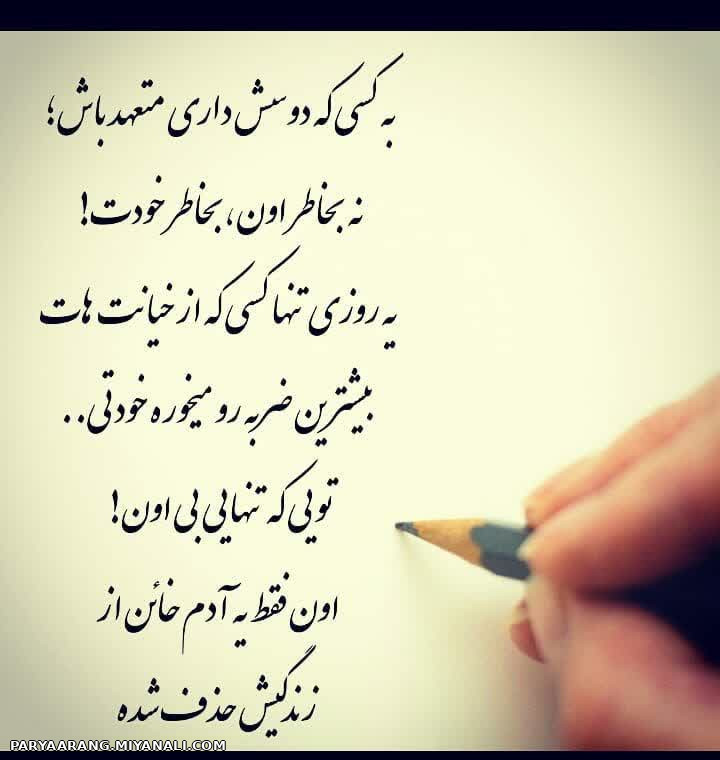 به کسی که دوسش داری متعهد باش؛
نه بخاطر اون، بخاطر خودت!
یه روزی تنها کسی که از خیانت هات
بیشترین ضربه رو میخوره خودتی..
تویی که تنهایی بی اون!
اون فقط یه آدم خائن از
زندگیش حذف شده
PARYAARANG.MIYANALI.COM